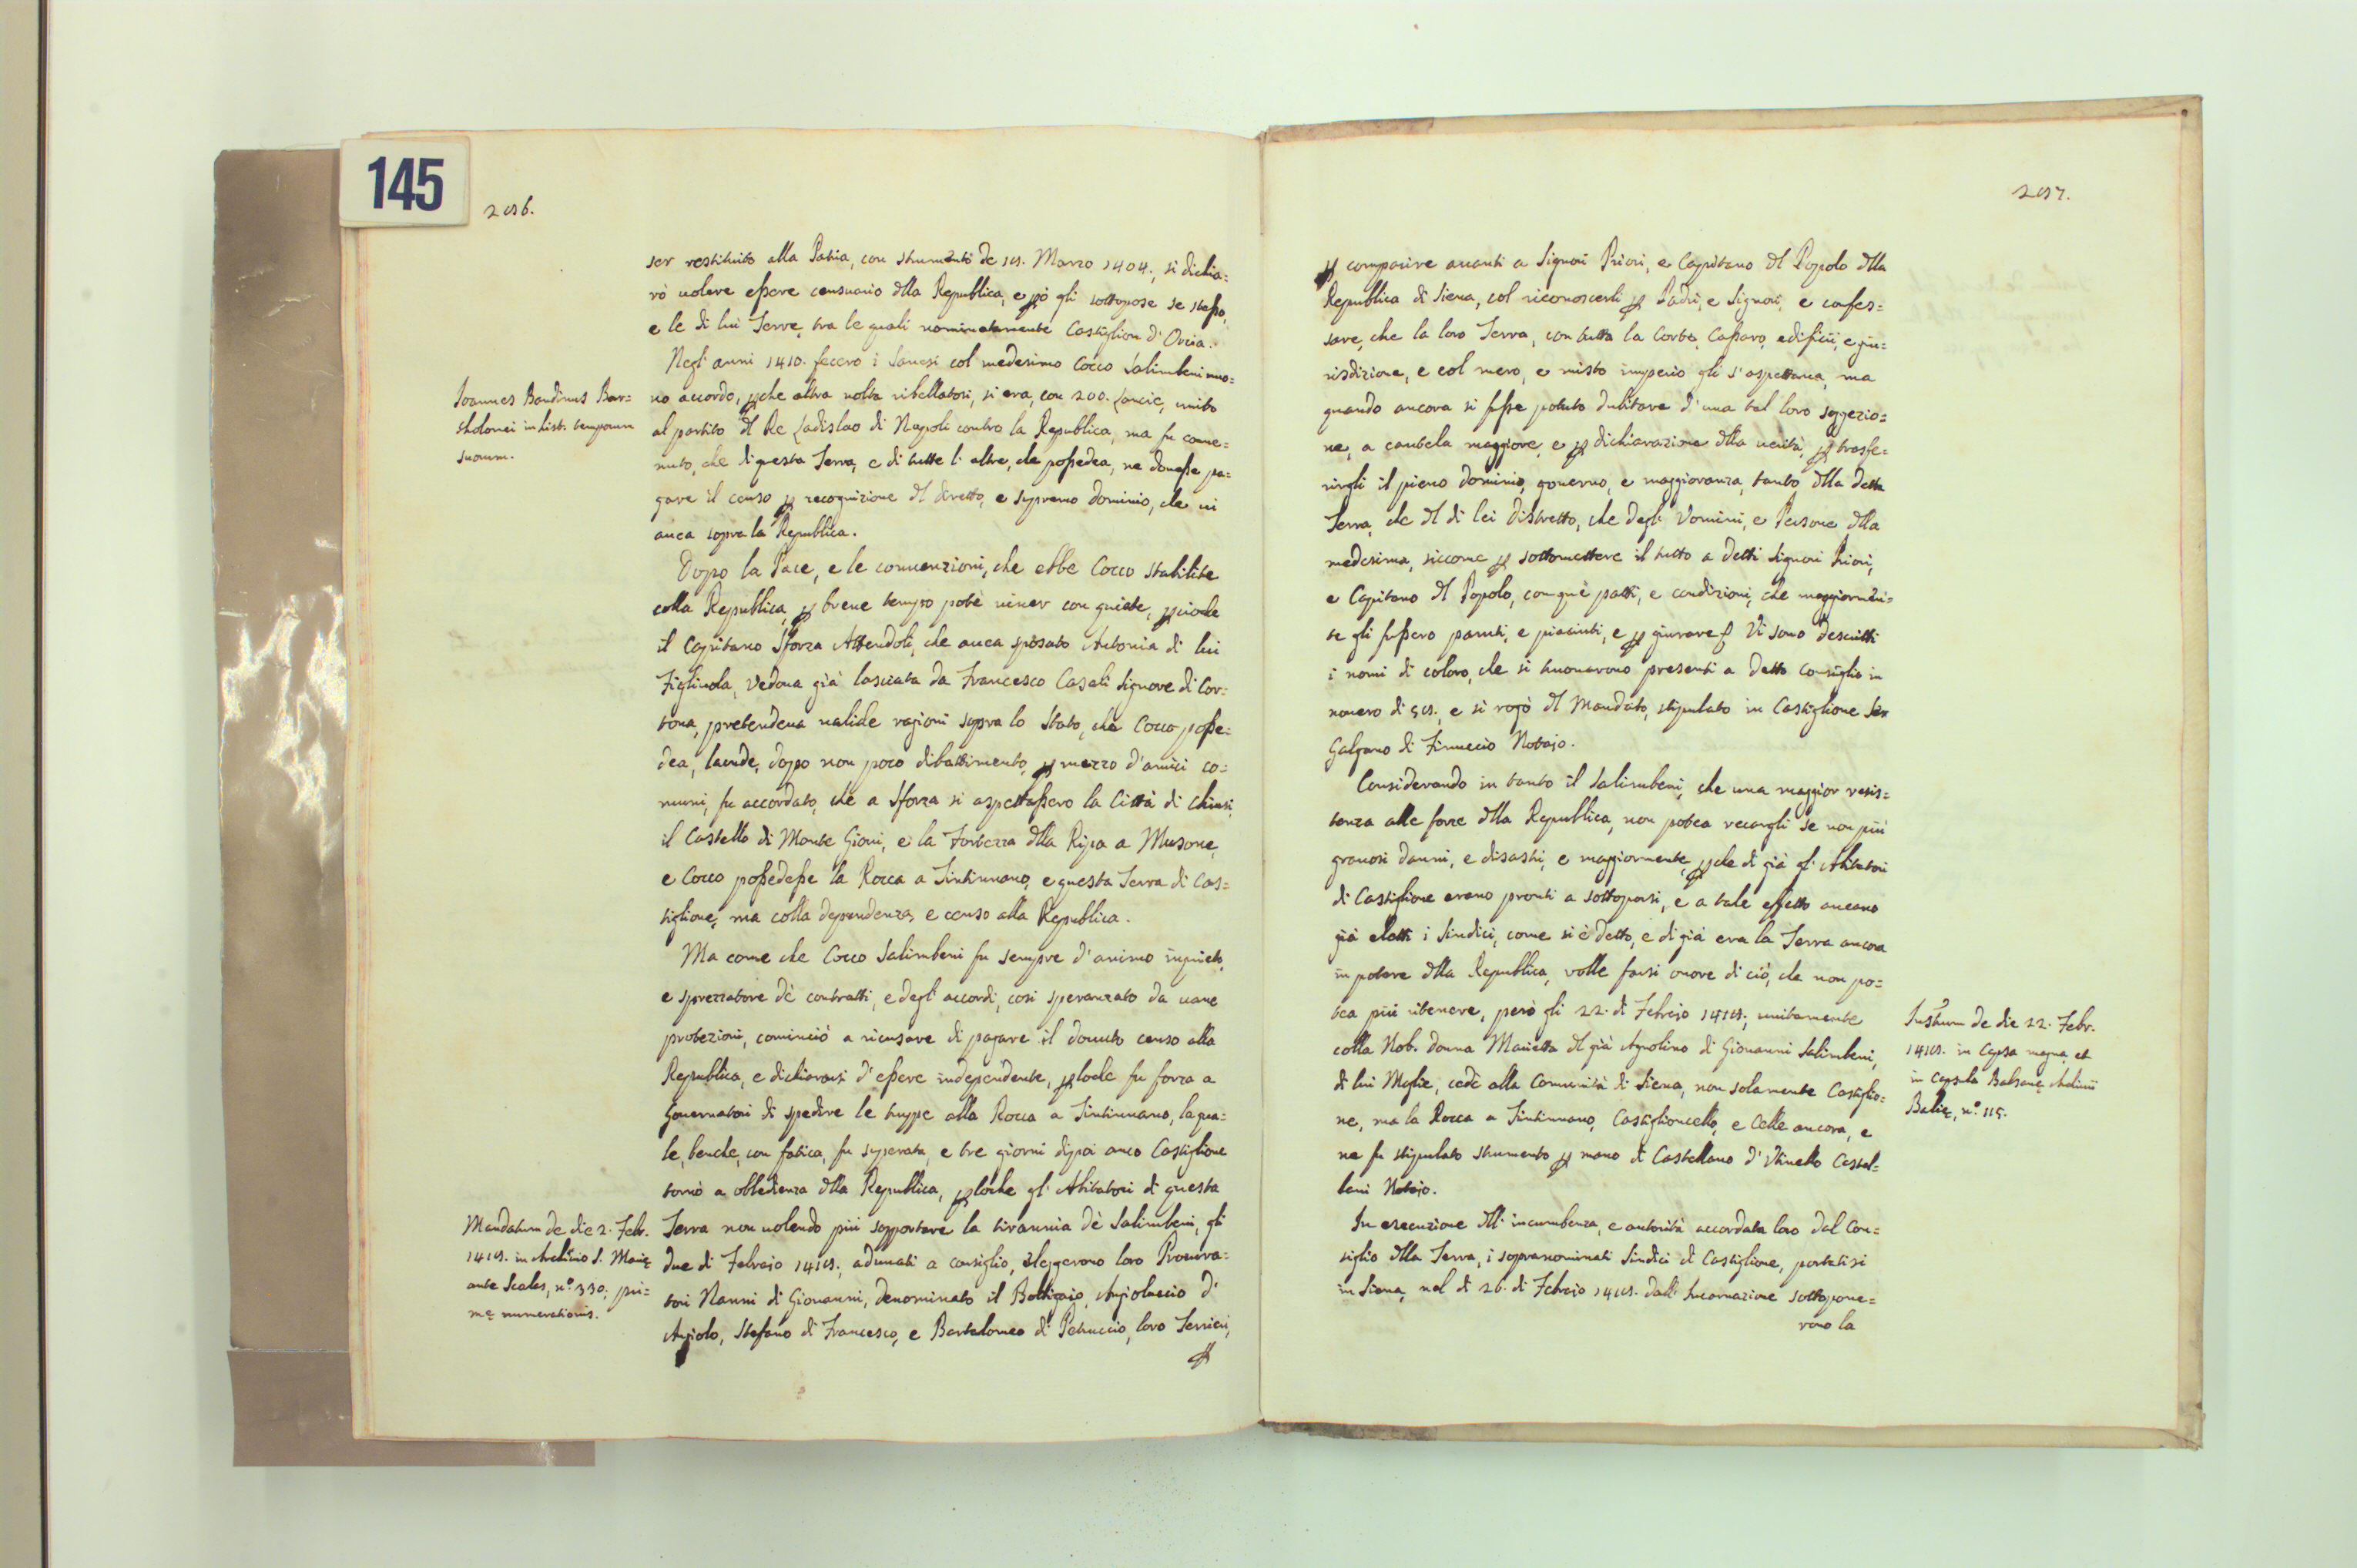 145
296.
ser restituito alla Patria, con strumento de 19. Marzo 1404., si dichia=
rò uolere essere censuario dlla Republica, e pò gli sottopose se stesso,
e le di lui Terre, tra le quali nominatamente Castiglion d'Orcia.
Negl'anni 1410. fecero i Sanesi col medesimo Cocco Salimbeni nuo=
Ioannes Bandinus Bar=
tholomei in hist. temporum
suorum.
uo accordo, pche altra uolta ribellatosi, si era, con 200. Lancie, unito
al partito dl Re Ladislao di Napoli contro la Republica, ma fu conue=
nuto, che di questa Terra, e di tutte l'altre, che possedea, ne douesse pa=
gare il censo p recognizione dl diretto, e supremo dominio, che ui
auea sopra la Republica.
Dopo la Pace, e le conuenzioni, che ebbe Cocco stabilite
colla Republica, p breue tempo potè uiuer con quiete, pcioche
il Capitano Sforza Attendoli, che auea sposato Antonia di lui
Figliuola, Vedoua già lasciata da Francesco Casali Signore di Cor=
tona, pretendeua ualide ragioni sopra lo Stato, che Cocco posse=
dea, laonde, dopo non poco dibattimento, p mezzo d'amici co=
muni, fu accordato, che a Sforza si aspettassero la Città di Chiusi,
il Castello di Monte Gioui, e la Fortezza dlla Ripa a Musone,
e Cocco possedesse la Rocca a Tintinnano, e questa Terra di Cas=
tiglione, ma colla dependenza, e censo alla Republica.
Ma come che Cocco Salimbeni fu sempre d'animo inquieto,
e sprezzatore dè contratti, e degl'accordi, così speranzato da uane
protezioni, cominciò a ricusare di pagare il douuto censo alla
Republica, e dichiararsi d'essere independente, ploche fu forza a
Gouernatori di spedire le truppe alla Rocca a Tintinnano, la qua=
le, benche, con fatica, fu superata, e tre giorni dipoi anco Castiglione
tornò a obbedienza dlla Republica, ploche gl'Abitatori di questa
Mandatum de die 2. Febr.
1419. in Archiuio S. Marię
ante Scalas, n.º 330. pri=
mę numerationis.
Terra non uolendo più sopportare la tirannia dè Salimbeni, gli
due di Febraio 1419., adunati a consiglio, elessero loro Procura=
tori Nanni di Giouanni, denominato il Bottigaio, Angioluccio d'
Angiolo, Stefano di Francesco, e Bartolomeo di Petruccio, loro Terrieri,
p
297.
p comparire auanti a Signori Priori, e Capitano dl Popolo dlla
Republica di Siena, col riconoscerli p Padri, e Signori, e confes=
sare, che la loro Terra, con tutta la Corte, Cassaro, edificii, e giu=
risdizione, e col mero, e misto imperio gli s'aspettaua, ma
quando ancora si fosse potuto dubitare d'una tal loro soggezio=
ne, a cautela maggiore, e p dichiarazione dlla uerità, p trasfe=
rirgli il pieno dominio, gouerno, e maggioranza, tanto dlla detta
Terra, che dl di lei distretto, che degl'Vomini, e Persone dlla
medesima, siccome p sottomettere il tutto a detti Signori Priori,
e Capitano dl Popolo, con què patti, e condizioni, che maggiormen=
te gli fussero paruti, e piaciuti, e p giurare p Vi sono descritti
i nomi di coloro, che si trouarono presenti a detto consiglio in
nouero di 59., e si rogò dl Mandato, stipulato in Castiglione Ser
Galgano di Finuccio Notaio.
Considerando in tanto il Salimbeni, che una maggior resis=
tenza alle forze dlla Republica, non potea recargli se non più
grauosi danni, e disastri, e maggiormente, pche di già gl'Abitatori
di Castiglione erano pronti a sottoporsi, e a tale effetto aueano
già eletti i Sindici, come si è detto, e di già era la Terra ancora
in potere dlla Republica, volle farsi onore di ciò, che non po=
tea più ritenere, però gli 22. di Febraio 1419., unitamente
Instrum de die 22. Febr.
1419. in Capsa magna, et
in Capsula Balsanę Archiuii
Balię, n.º 115.
colla Nob. donna Marietta dl già Agnolino di Giouanni Salimbeni,
di lui Moglie, cedè alla Comunità di Siena, non solamente Castiglio=
ne, ma la Rocca a Tintinnano, Castiglioncello, e Celle ancora, e
ne fu stipulato strumento p mano di Castellano d'Vtinello Castel=
lani Notaio.
In esecuzione dll'incumbenza, e autorità accordata loro dal Con=
siglio dlla Terra, i sopranominati Sindici di Castiglione, portatisi
in Siena, nel dì 26. di Febraio 1419. dall'Incarnazione sottopone=
rono la